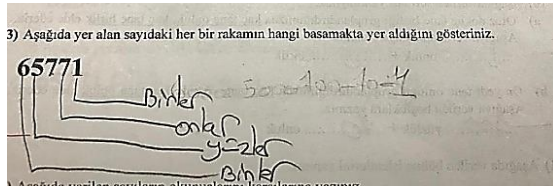 3) Aşağıda yer alan sayıdaki her bir rakamın hangi basamakta yer aldığını gösteriniz.
65771
Binler
onlar
yüzler
Binler